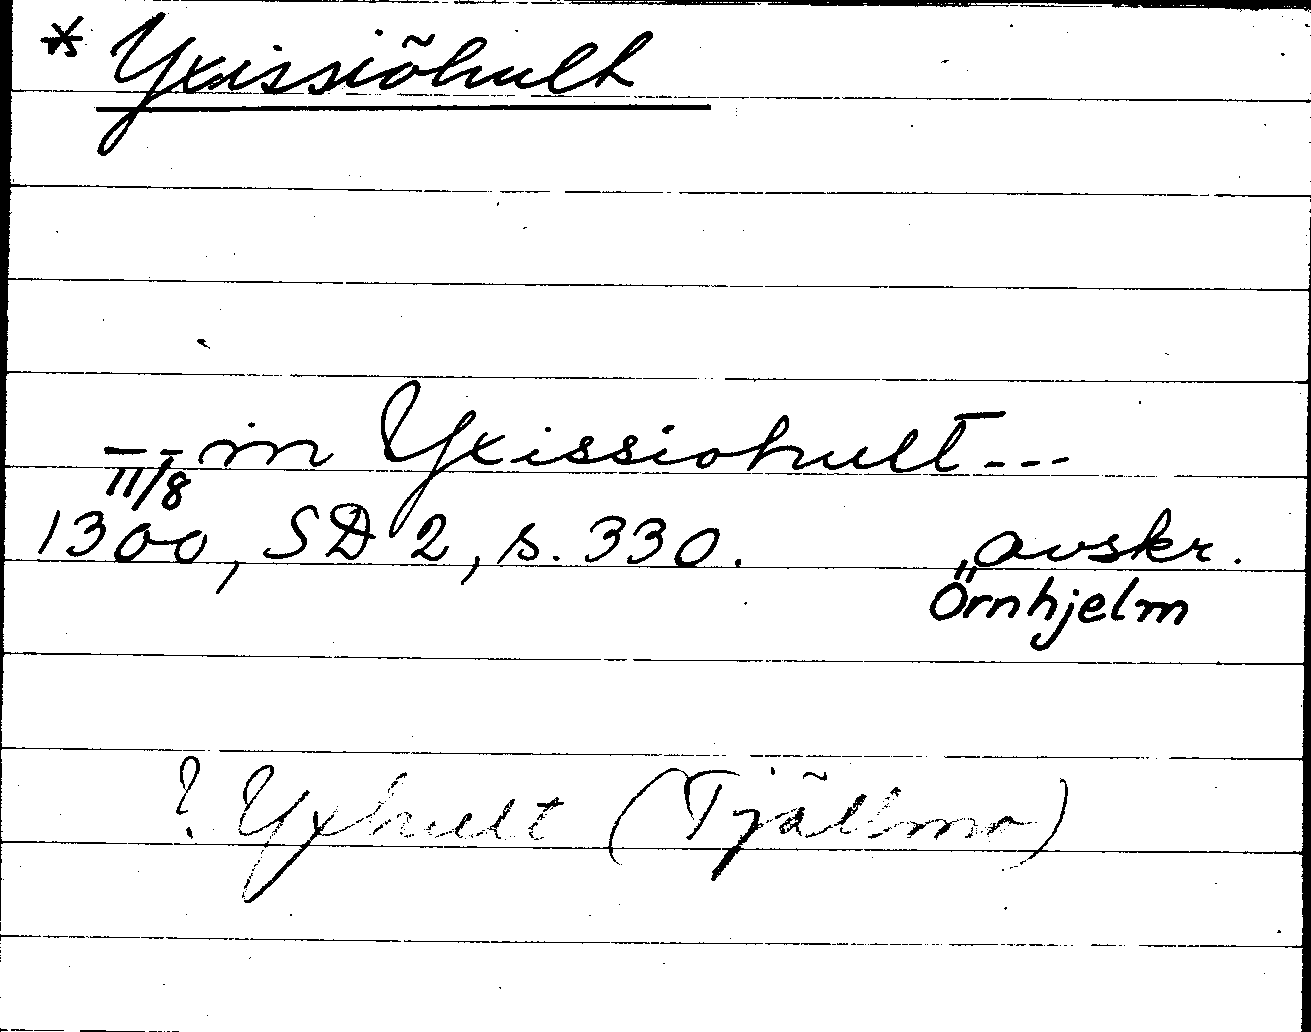 * Yxissiõhult
- - in Yxissiohult - - -
11/8
1300, SD 2, s. 330. avskr.
Örnhjelm
? Yxhult (Tjällmo)